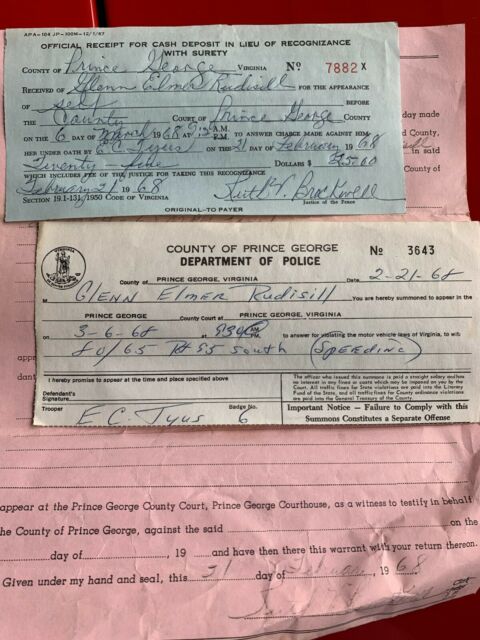 APA-104 JP-100M-12/1/67
OFFICIAL RECEIPT FOR CASH DEPOSIT IN LIEU OF RECOGNIZANCE
WITH SURETY
COUNTY OF Prince George VIRGINIA No 7882 X
RECEIVED OF Glenn Elmer Rudisill FOR THE APPEARANCE
OF self BEFORE
THE County COURT OF Prince George COUNTY
ON THE 6 DAY OF March 1968 AT 9:30 A.M. P.M. TO ANSWER CHARGE MADE AGAINST HIM
HER UNDER OATH BY E C Tyus ON THE 21 DAY OF February 1968
Twenty - five DOLLARS $ 25.00
WHICH INCLUDES FEE OF THE JUSTICE FOR TAKING THIS RECOGNIZANCE
February 21 1968 Ruth T. Brockwell
SECTION 19.1-131, 1950 CODE OF VIRGINIA Justice of the Peace
ORIGINAL-TO PAYER
day made
d County,
in said
County of
COUNTY OF PRINCE GEORGE No 3643
DEPARTMENT OF POLICE
VIRGINIA
County of PRINCE GEORGE, VIRGINIA Date 2-21-68
M GLENN Elmer Rudisill You are hereby summoned to appear in the
PRINCE GEORGE County Court at PRINCE GEORGE, VIRGINIA
on 3-6-68 at 9:30 AM PM to answer for violating the motor vehicle laws of Virginia, to wit:
80/65 Rt 35 South (SPEEDING)
I hereby promise to appear at the time and place specified above
The officer who issued this summons is paid a straight salary and has
no interest in any fines or costs which may be imposed on you by the
Court. All traffic fines for State violations are paid into the Literary
Fund of the State, and all traffic fines for County ordinance violations
are paid into the General Treasury of the County.
Defendant's
Signature
Trooper E C Tyus Badge No. 6
Important Notice — Failure to Comply with this
Summons Constitutes a Separate Offense
app
dant
appear at the Prince George County Court, Prince George Courthouse, as a witness to testify in behalf
the County of Prince George, against the said on the
day of , 19 and have then there this warrant with your return thereon.
Given under my hand and seal, this 21 day of February, 1968